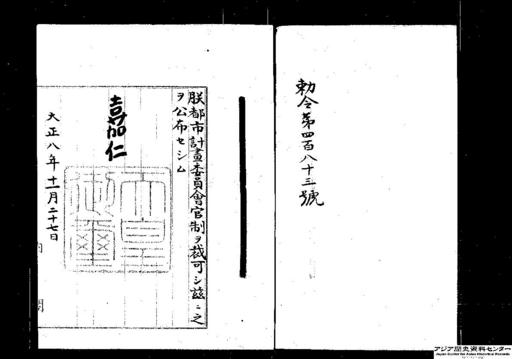 勅令第四百八十三號
朕都市計畫委員會官制ヲ裁可シ茲ニ之
ヲ公布セシム
嘉仁
大正八年十一月二十七日
内閣
アジア歴史資料センター
Japan Center for Asian Historical Records